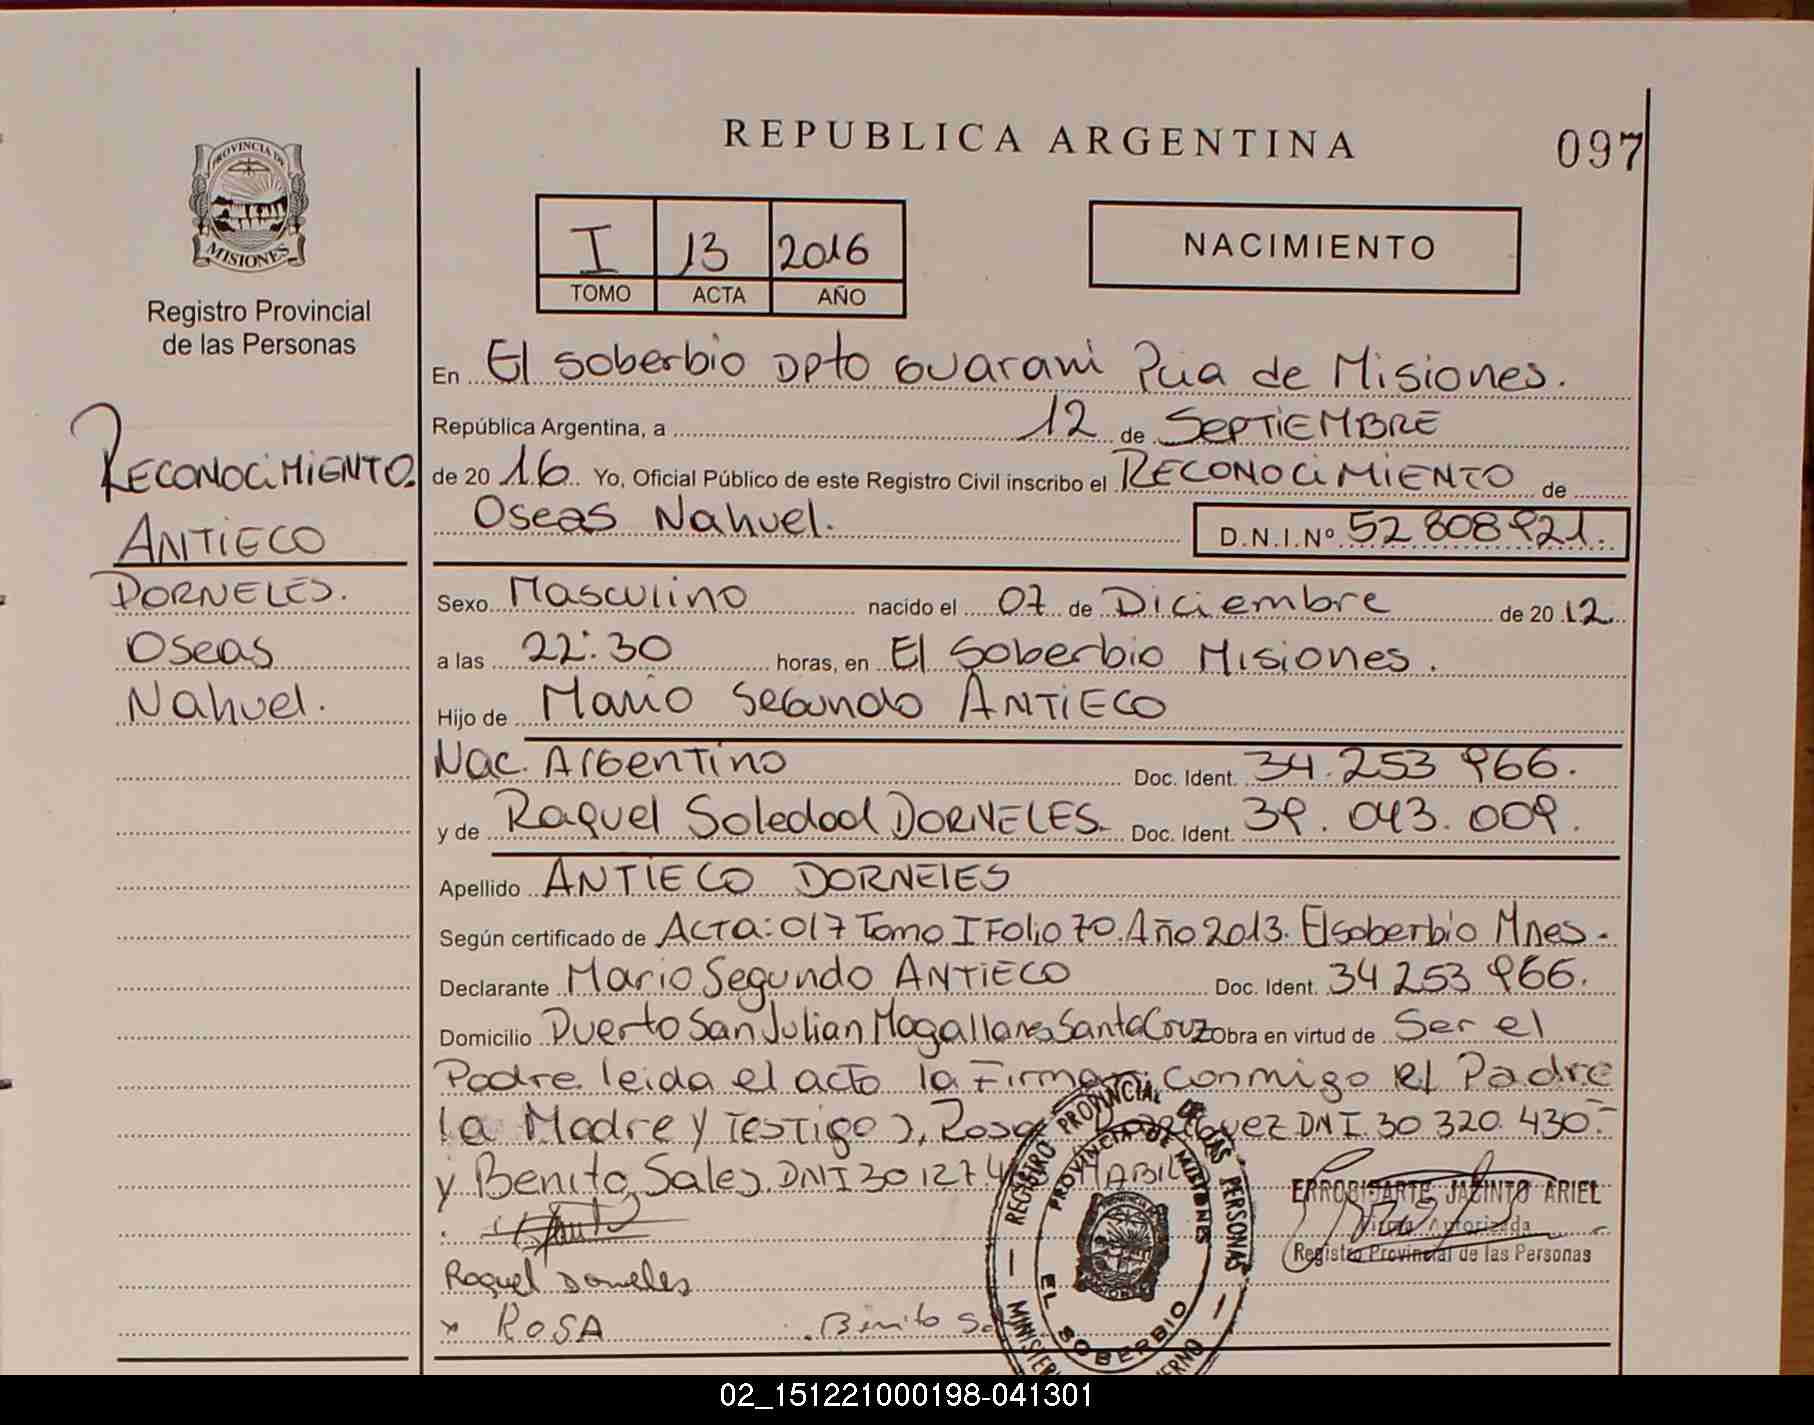 REPUBLICA ARGENTINA
097
PROVINCIA DE
MISIONES
Registro Provincial
de las Personas
I 13 2016
TOMO ACTA AÑO
NACIMIENTO
En El Soberbio Dpto Guarani Pcia de Misiones.
República Argentina, a 12 de SEPTIEMBRE
de 2016 Yo, Oficial Público de este Registro Civil inscribo el RECONOCIMIENTO de
Oseas Nahuel. D.N.I.Nº 52 808 921.
RECONOCIMIENTO
ANTIECO
DORNELES.
Oseas
Nahuel.
Sexo Masculino nacido el 07 de Diciembre de 2012.
a las 22:30 horas, en El Soberbio Misiones.
Hijo de Mario Segundo ANTIECO
Nac. Argentino Doc. Ident. 34.253 966.
y de Raquel Soledad DORNELES. Doc. Ident. 39.043.009.
Apellido ANTIECO DORNELES
Según certificado de ACTA: 017 Tomo I Folio 70. Año 2013. El soberbio Mnes.
Declarante Mario Segundo ANTIECO Doc. Ident. 34 253 966.
Domicilio Puerto San Julian Magallanes Santa Cruz Obra en virtud de Ser el
Padre leida el acto la Firman conmigo el Padre
la Madre y Testigos, Rosa DNI. 30 320. 430.
y Benito Sales. DNI 30 1274
ERROBIDARTE JACINTO ARIEL
Firma Autorizada
Registro Provincial de las Personas
Raquel Dorneles
x ROSA Benito
REGISTRO PROVINCIAL DE LAS PERSONAS
PROVINCIA DE MISIONES
EL SOBERBIO
02_151221000198-041301